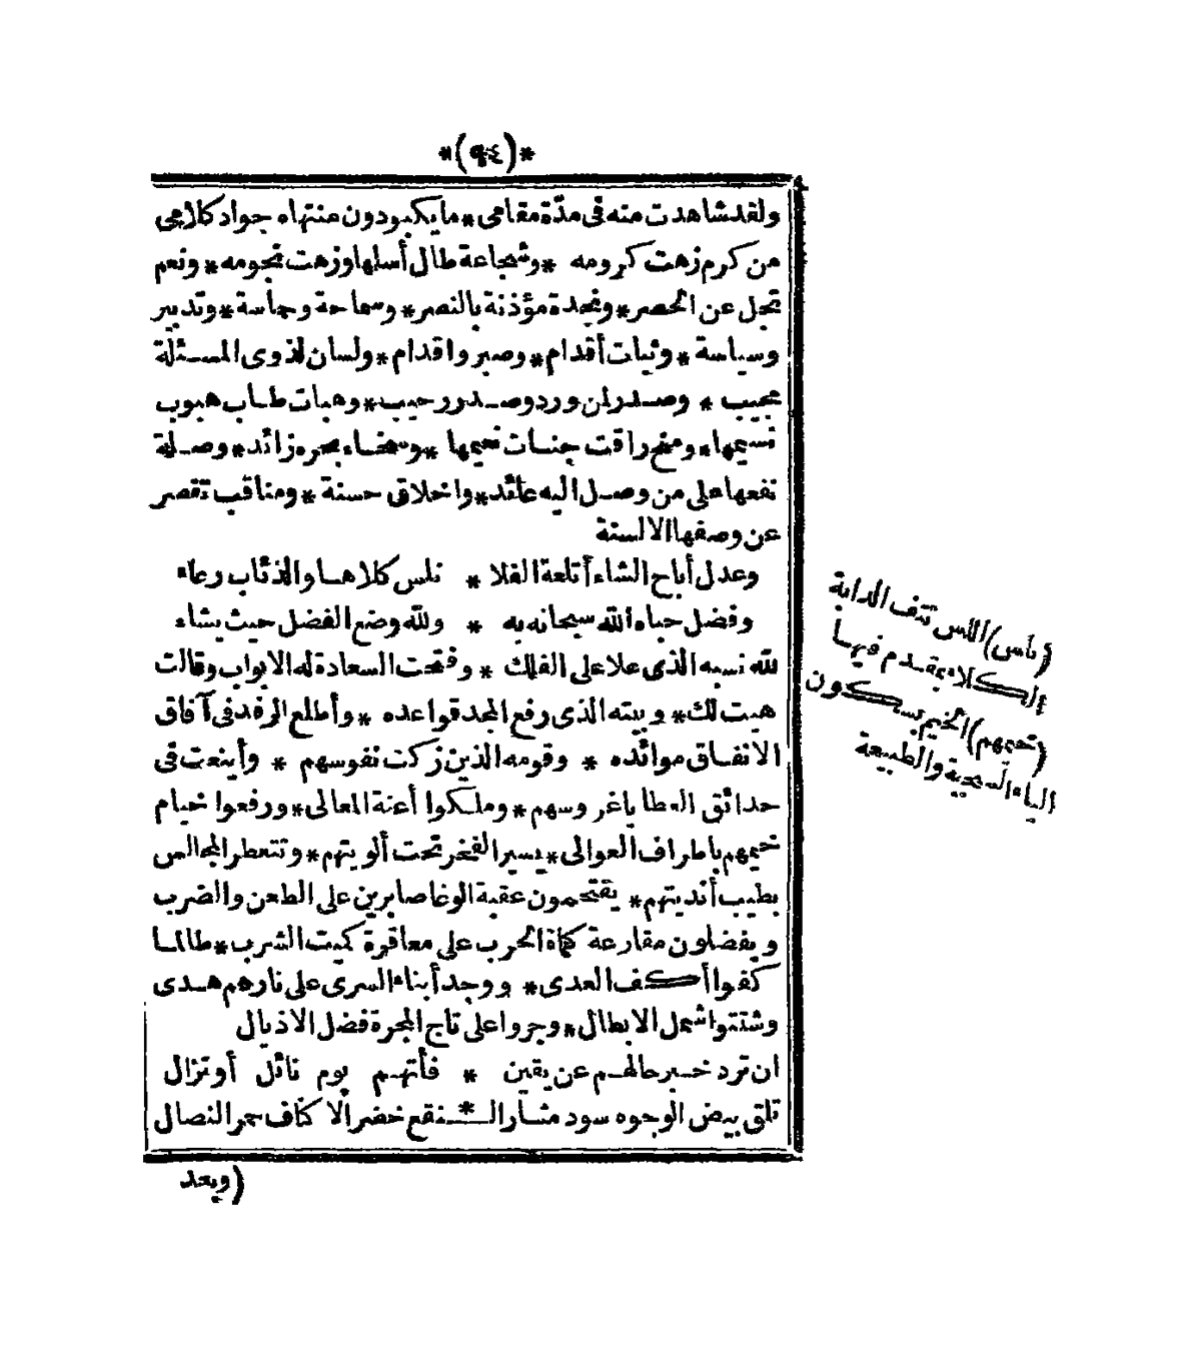 *(٩٤)*
ولقد شاهدت منه فى مدّة مقامى * ما يكبو دون منتهاه جواد كلامى
من كرم زهت كرومه * وشجاعة طال أسلها وزهت نجومه * ونعم
تجل عن الحصر * ونجدة مؤذنة بالنصر * وسماحة وحماسة * وتدبير
وسياسة * وثبات أقدام * وصبر واقدام * ولسان لذوى المسئلة
مجيب * وصدر لمن ورد وصدر رحيب * وهبات طاب هبوب
نسيمها * ومنح راقت جنات نعيمها * وسخاء بحره زائد * وصلة
نفعها على من وصل اليه عائد * واخلاق حسنة * ومناقب تقصر
عن وصفها الالسنة
وعدل أباح الشاء أتلعة الفلا * تلس كلاها والذئاب رعاء
وفضل حباه الله سبحانه به * ولله وضع الفضل حيث يشاء
لله نسبه الذى علا على الفلك * وفتحت السعادة له الابواب وقالت
هيت لك * وبيته الذى رفع المجد قواعده * وأطلع الرفد فى آفاق
الانفاق موائده * وقومه الذين زكت نفوسهم * وأينعت فى
حدائق العطايا غروسهم * وملكوا أعنة المعالى * ورفعوا خيام
خيمهم باطراف العوالى * يسير الفخر تحت ألويتهم * وتتعطر المجالس
بطيب أنديتهم * يقتحمون عقبة الوغا صابرين على الطعن والضرب
ويفضلون مقارعة كماة الحرب على معاقرة كميت الشرب * طالما
كفوا أكف العدى * ووجد أبناء السرى على نارهم هدى
وشتتوا شمل الابطال * وجروا على تاج المجرة فضل الاذيال
ان ترد خبر حالهم عن يقين * فأتهم يوم نائل أو نزال
تلق بيض الوجوه سود مثار الـ * ـنقع خضر الاكناف حمر النصال
(وبعد
(تلس) اللس نتف الدابة
الكلاء بمقدم فيها
(خيمهم) الخيم بسكون
الياء السجية والطبيعة